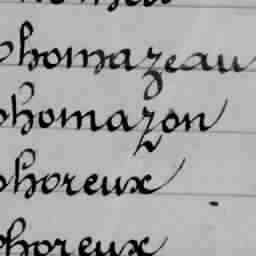 homazeau
homazon
horeux
horeux